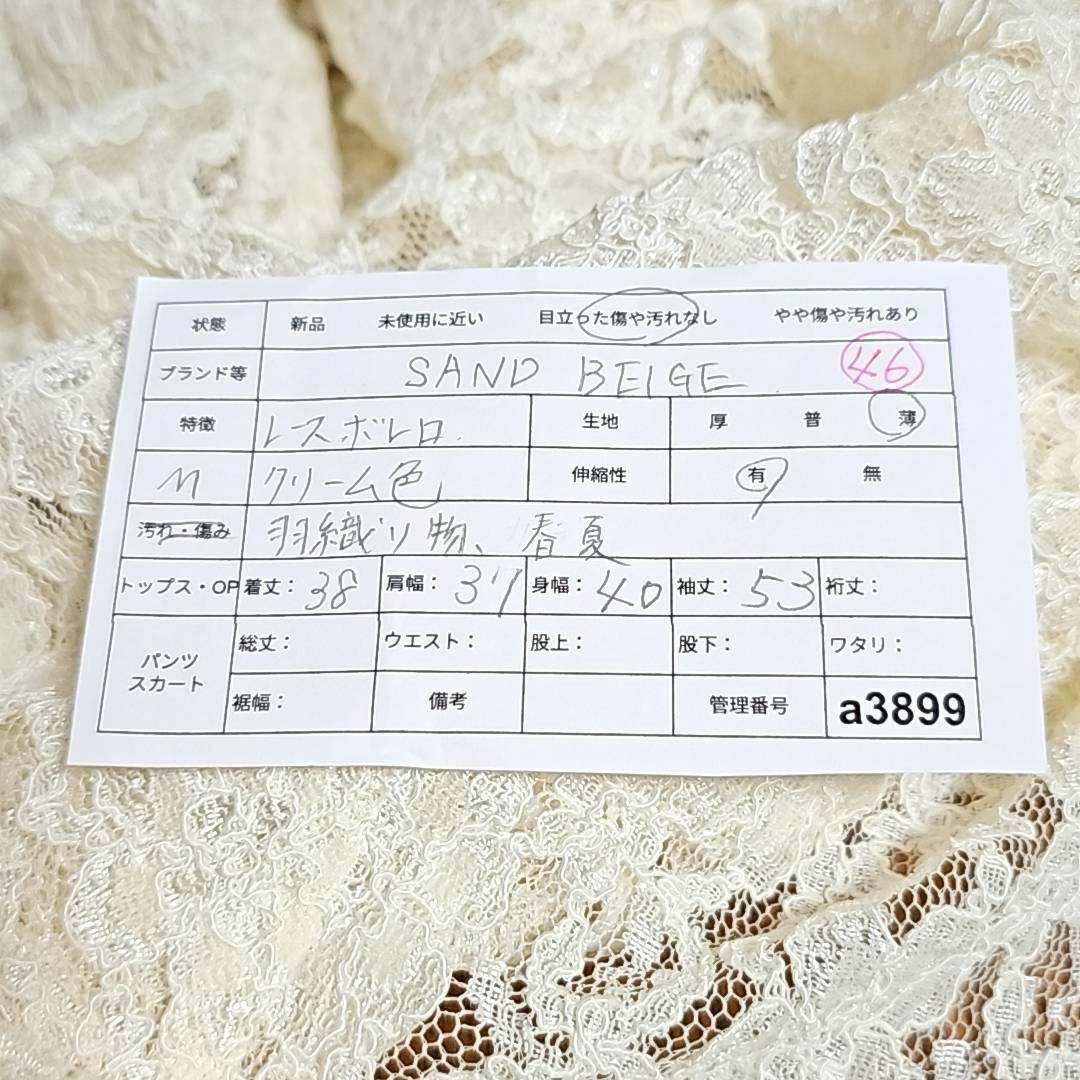 状態 新品 未使用に近い 目立った傷や汚れなし やや傷や汚れあり
ブランド等 SAND BEIGE 46
特徴 レスボレロ 生地 厚 普 薄
M クリーム色 伸縮性 有 無
汚れ・傷み 羽織り物、春夏
トップス・OP 着丈：38 肩幅：37 身幅：40 袖丈：53 裄丈：
パンツ スカート 総丈： ウエスト： 股上： 股下： ワタリ：
裾幅： 備考 管理番号 a3899